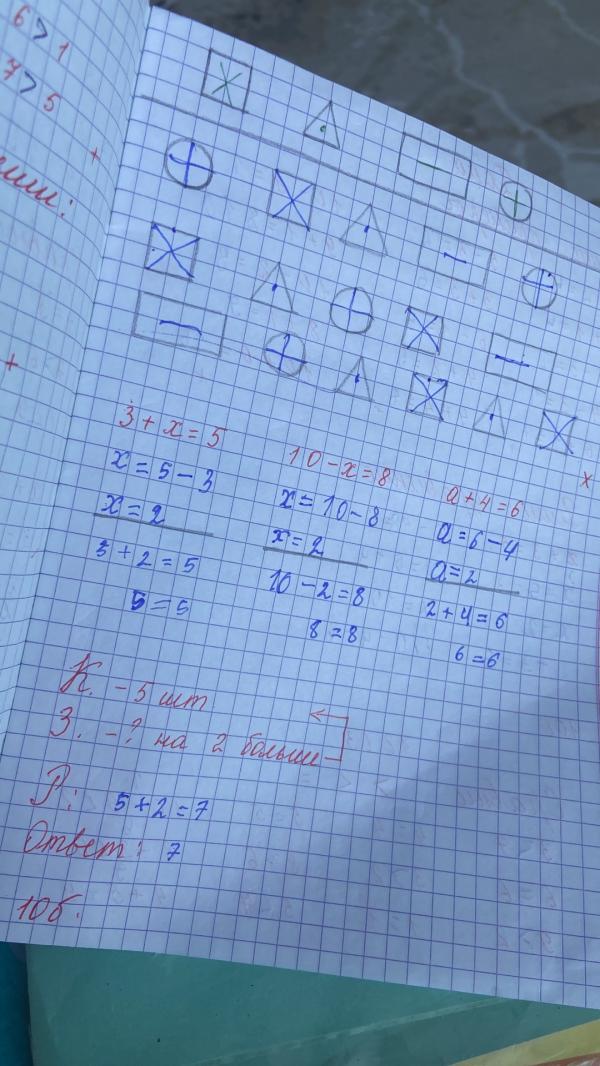 6 > 1
7 > 5
3 + x = 5
x = 5 - 3
x = 2
3 + 2 = 5
5 = 5
10 - x = 8
x = 10 - 8
x = 2
10 - 2 = 8
8 = 8
a + 4 = 6
a = 6 - 4
a = 2
2 + 4 = 6
6 = 6
К. - 5 шт
З. - ? на 2 больше
Р: 5 + 2 = 7
Ответ: 7
10б.